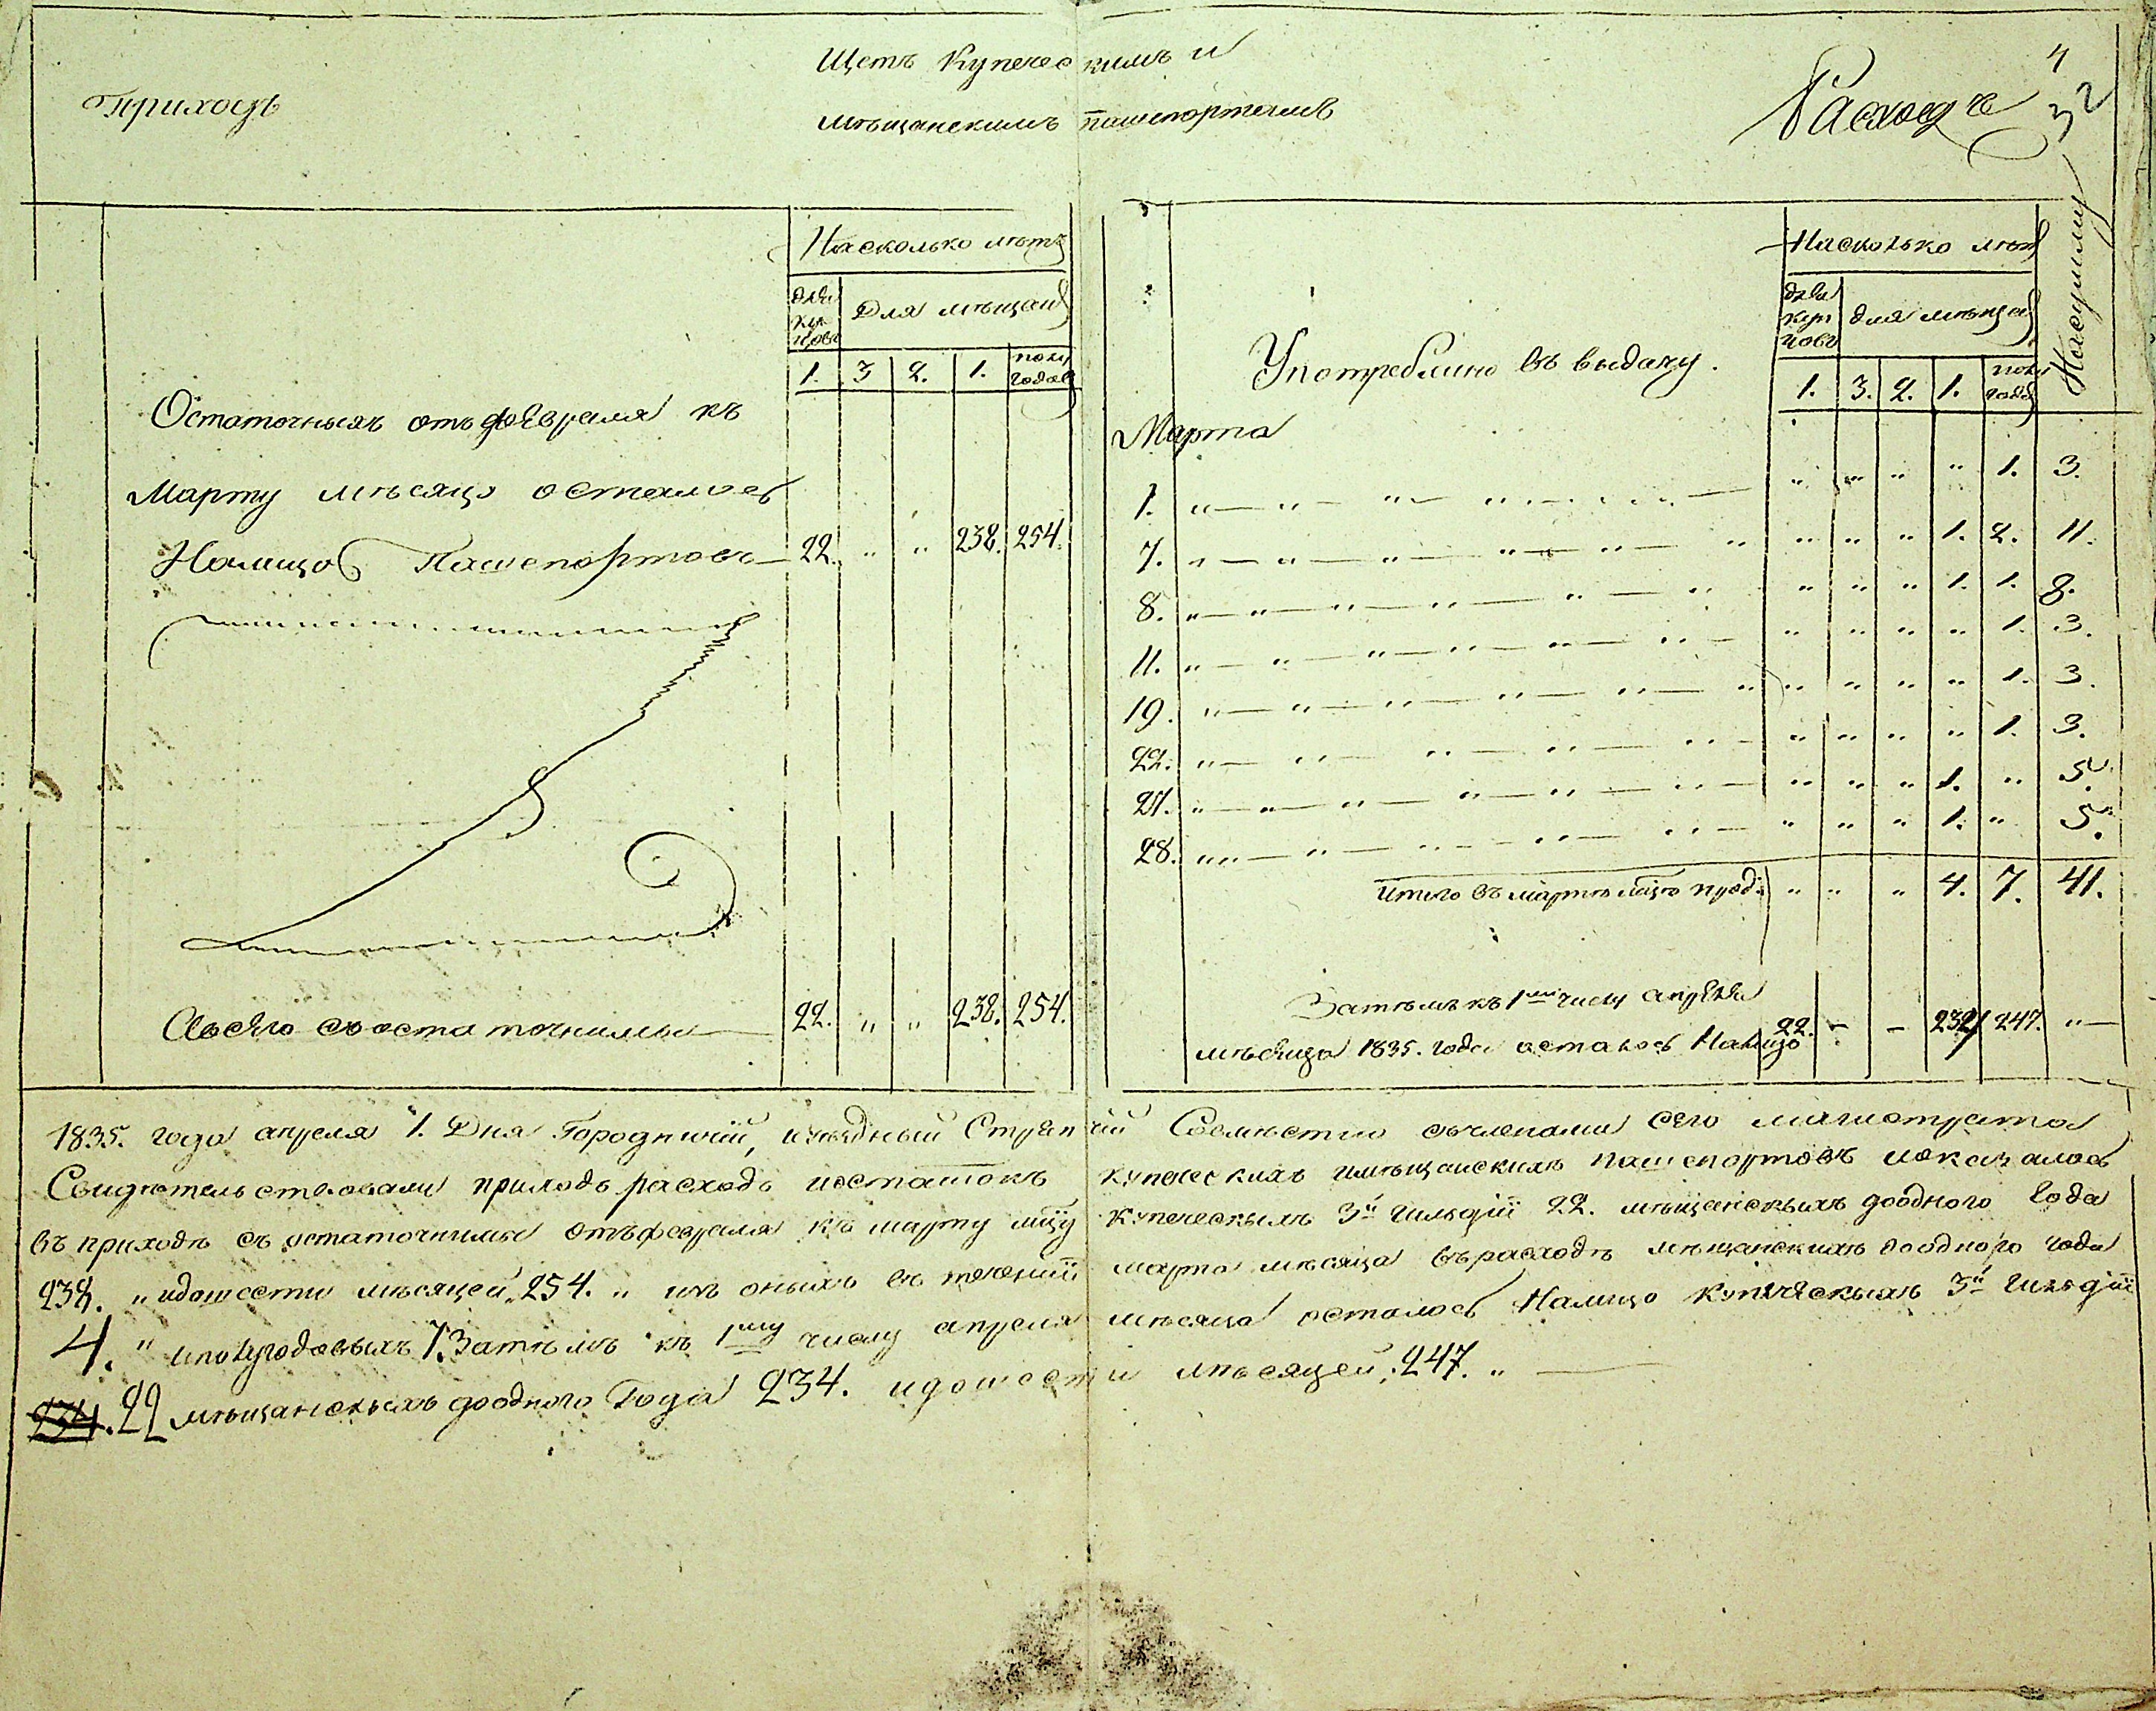 Щетъ Купеческимъ и
мѣщанскимъ пашспортамъ
Приходъ
Насколько лѣтъ
для купцовъ
Для мѣщанъ
1. 3 2. 1. полугодов
Остаточныхъ отъ февраля къ
Марту мѣсяцу осталось
Налицо Пашспортовъ — 22. " " 238. 254.
А всѣго съ остаточными — 22. " " 238. 254.
4
32
Расходъ
Насколько лѣтъ
На сумму
для купцовъ
для мѣщанъ
Употреблено въ выдачу.
1. 3. 2. 1. полугода
Марта
1. " " " " 1. 3.
7. " " " 1. 2. 11.
8. " " " 1. 1. 8.
11. " " " " 1. 3.
19. " " " " 1. 3.
22. " " " " 1. 3.
27. " " " 1. " 5.
28. " " " 1. " 5.
Итого въ мартѣ мцѣ прод: " " " 4. 7. 41.
Затѣмъ къ 1му числу апреля
мѣсяца 1835. года осталось Налицо 22. - - 234 247. "—
1835. года апреля 1. Дня Городничій, иуѣздный Стряпчій Совмѣстно съчленами сего магистрата
Свидѣтельствовали приходъ расходъ иостатокъ купеческихъ имѣщанскихъ пашспортовъ иоказалось
въ приходѣ съ остаточными отъ февраля къ марту мцу купеческихъ 3й гильдіи 22. мѣщанскихъ доодного года
238. " идошести мѣсяцей, 254. " изъ оныхъ въ теченіи марта мѣсяца въ расходѣ мѣщанскихъ доодного года
4. " иполугодовыхъ 7. Затѣмъ къ 1му числу апреля мѣсяца осталось Налицо купеческихъ 3й гильдіи
234. 22 мѣщанскихъ доодного Года 234. идошести мѣсяцей, 247. " —